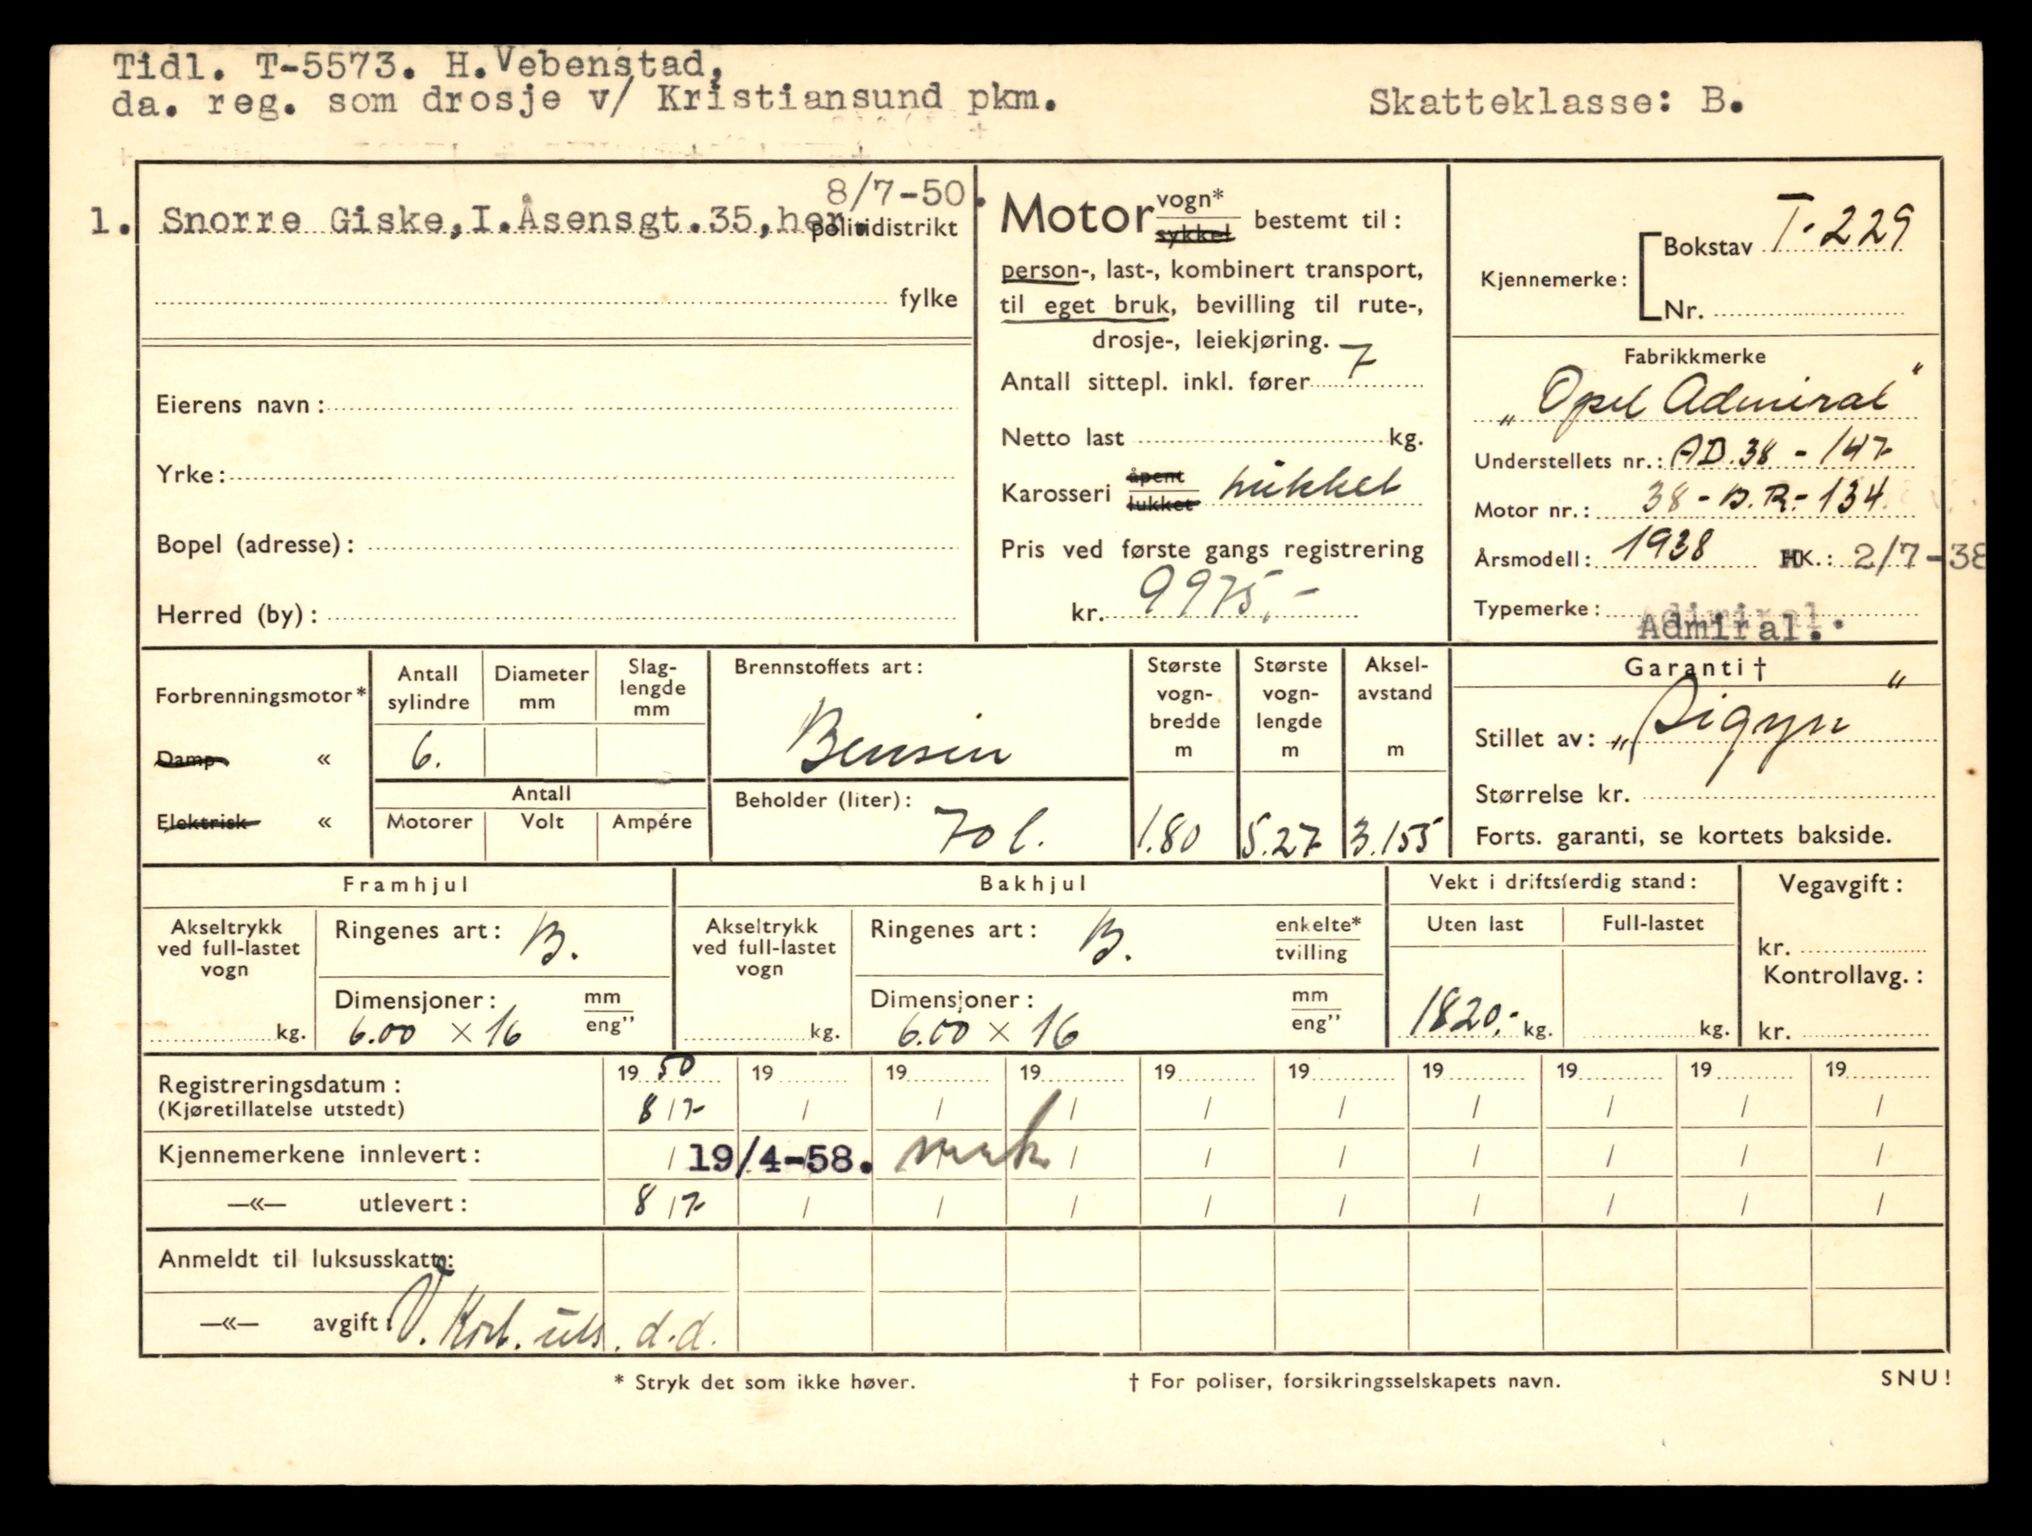 Tidl. T-5573. H.Vebenstad,
da. reg. som drosje v/ Kristiansund pkm.
Skatteklasse: B.
8/7-50.
1. Snorre Giske,I.Åsensgt.35,her.
politidistrikt
fylke
Eierens navn:
Yrke:
Bopel (adresse):
Herred (by):
Motor vogn*
sykkel
bestemt til:
person-, last-, kombinert transport,
til eget bruk, bevilling til rute-,
drosje-, leiekjøring.
Antall sittepl. inkl. fører 7
Netto last kg.
Karosseri åpent
lukket
lukket
Pris ved første gangs registrering
kr. 9975,-
Kjennemerke: Bokstav T-229
Nr.
Fabrikkmerke
„Opel Admiral"
Understellets nr.: AD.38 - 147
Motor nr.: 38-B.R.-134.
Årsmodell: 1938 HK.: 2/7-38
Typemerke: Admiral.
Forbrenningsmotor*
Damp «
Elektrisk «
Antall sylindre
6.
Diameter mm
Slag-
lengde
mm
Antall
Motorer Volt Ampére
Brennstoffets art:
Bensin
Beholder (liter):
70 l.
Største
vogn-
bredde
m
1.80
Største
vogn-
lengde
m
5.27
Aksel-
avstand
m
3.155
Garanti †
Stillet av: „Sigyn"
Størrelse kr.
Forts. garanti, se kortets bakside.
Framhjul
Akseltrykk
ved full-lastet
vogn
kg.
Ringenes art: B.
Dimensjoner: mm
eng”
6.00 × 16
Bakhjul
Akseltrykk
ved full-lastet
vogn
kg.
Ringenes art: B. enkelte*
tvilling
Dimensjoner: mm
eng”
6.00 × 16
Vekt i driftsferdig stand:
Uten last Full-lastet
1820,- kg. kg.
Vegavgift:
kr.
Kontrollavg.:
kr.
19 50 19 19 19 19 19 19 19 19 19
Registreringsdatum:
(Kjøretillatelse utstedt) 8/7 / / / / / / / / /
Kjennemerkene innlevert: / 19/4-58. / / / / / / /
—«— utlevert: 8/7 / / / / / / / / /
Anmeldt til luksusskatt:
—«— avgift: V. Kort. uts. d.d.
* Stryk det som ikke høver.
† For poliser, forsikringsselskapets navn.
SNU!